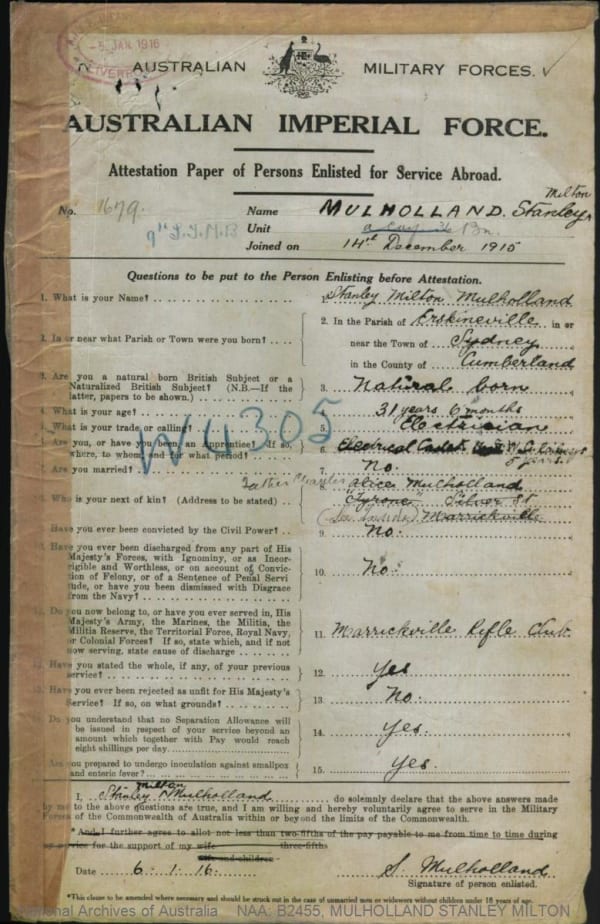 -5 JAN 1916
LIVERPOOL
AUSTRALIAN MILITARY FORCES.
AUSTRALIAN IMPERIAL FORCE.
Attestation Paper of Persons Enlisted for Service Abroad.
Milton
No. 1679. Name MULHOLLAND. Stanley
Unit
Joined on 14th December 1915
Questions to be put to the Person Enlisting before Attestation.
1. What is your Name? 1. Stanley Milton Mulholland
2. In or near what Parish or Town were you born? 2. In the Parish of Erskineville in or
near the Town of Sydney
in the County of Cumberland
3. Are you a natural born British Subject or a
Naturalized British Subject? (N.B.—If the
latter, papers to be shown.) 3. Natural born
4. What is your age? 31 years 6 months
5. What is your trade or calling? 5. Electrician
W4305
6. Are you, or have you been, an Apprentice? If so,
where, to whom, and for what period? 6. Electrical Cadet
5 years.
7. Are you married? 7. No.
Father Charles
8. Who is your next of kin? (Address to be stated) 8. Alice Mulholland
Tyrone Silver St
Marrickville
9. Have you ever been convicted by the Civil Power? 9. No.
Have you ever been discharged from any part of His
Majesty's Forces, with Ignominy, or as Incor-
rigible and Worthless, or on account of Convic-
tion of Felony, or of a Sentence of Penal Servi
tude, or have you been dismissed with Disgrace
from the Navy? 10. No.
Do you now belong to, or have you ever served in, His
Majesty's Army, the Marines, the Militia, the
Militia Reserve, the Territorial Force, Royal Navy,
or Colonial Forces? If so, state which, and if not
now serving, state cause of discharge 11. Marrickville Rifle Club.
12. Have you stated the whole, if any, of your previous
service? 12. Yes
13. Have you ever been rejected as unfit for His Majesty's
Service? If so, on what grounds? 13. No.
Do you understand that no Separation Allowance will
be issued in respect of your service beyond an
amount which together with Pay would reach
eight shillings per day 14. Yes.
Are you prepared to undergo inoculation against smallpox
and enteric fever? 15. Yes.
Milton
I, Stanley Mulholland do solemnly declare that the above answers made
by me to the above questions are true, and I am willing and hereby voluntarily agree to serve in the Military
Forces of the Commonwealth of Australia within or beyond the limits of the Commonwealth.
*And I further agree to allot not less than two-fifths of the pay payable to me from time to time during
my service for the support of my wife three-fifths
wife and children
Date 6.1.16. S. Mulholland
Signature of person enlisted.
*This clause to be amended where necessary and should be struck out in the case of unmarried men or widowers without children under 18 years of age.
National Archives of Australia NAA: B2455, MULHOLLAND STANLEY MILTON